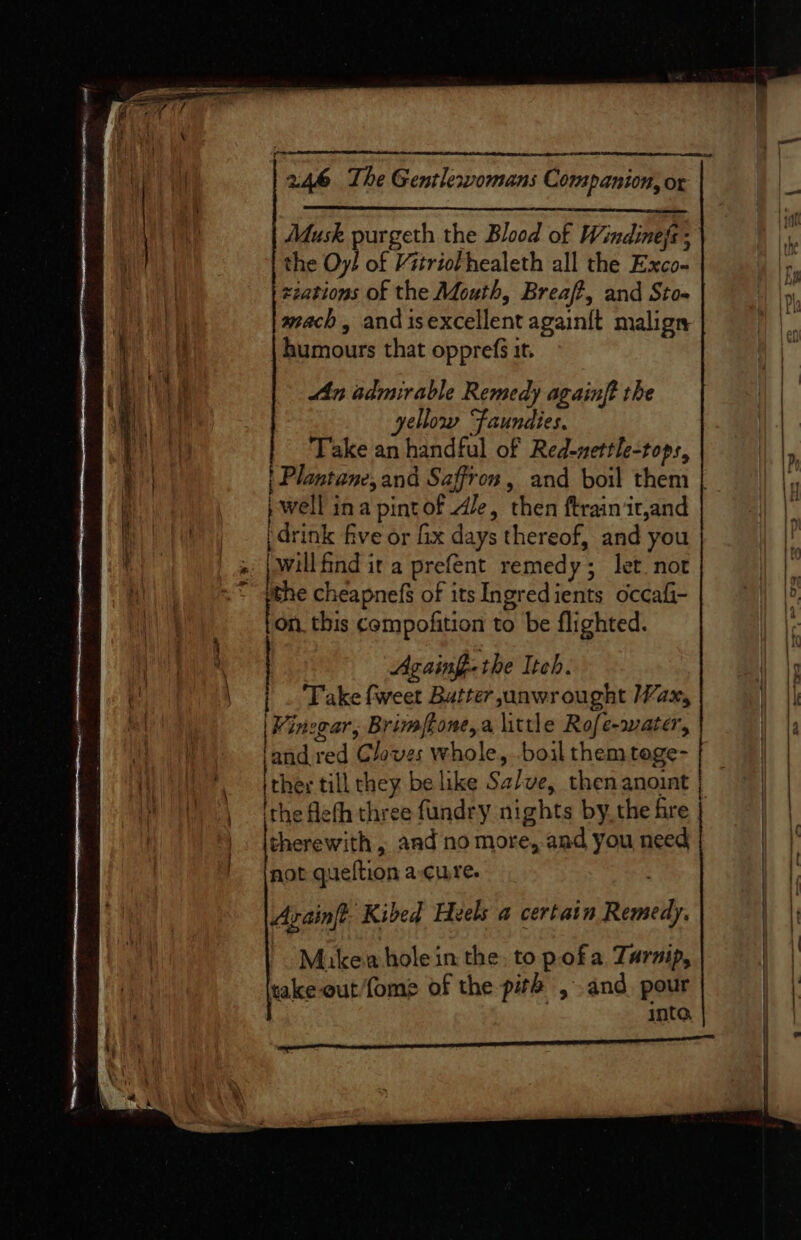 246 The Gentlewomans Companion, or
Musk purgeth the Blood of Windineſs;
the Oyl of Vitriol healeth all the Exco-
riations of the Mouth, Breaſt, and Sto-
mach, and is excellent againſt malign
humours that oppreſs it.
An admirable Remedy againſt the
yellow Jaundies.
Take an handful of Red-nettle-tops,
Plantane, and Saffron, and boil them
well in a pint of Ale, then ſtrain it, and
drink five or ſix days thereof, and you
will find it a preſent remedy; let not
the cheapneſs of its Ingredients occaſi-
on this compoſition to be ſlighted.
Againſt the Itch.
Take ſweet Butter, unwrought Wax,
Vinegar, Brimſtone, a little Roſe-water,
and red Cloves whole, boil them toge-
ther till they be like Salve, then anoint
the fleſh three ſundry nights by the fire
therewith, and no more, and you need
not queſtion a cure.
Againſt Kibed Heels a certain Remedy.
Make a hole in the top of a Turnip,
take out ſome of the pith, and pour
into